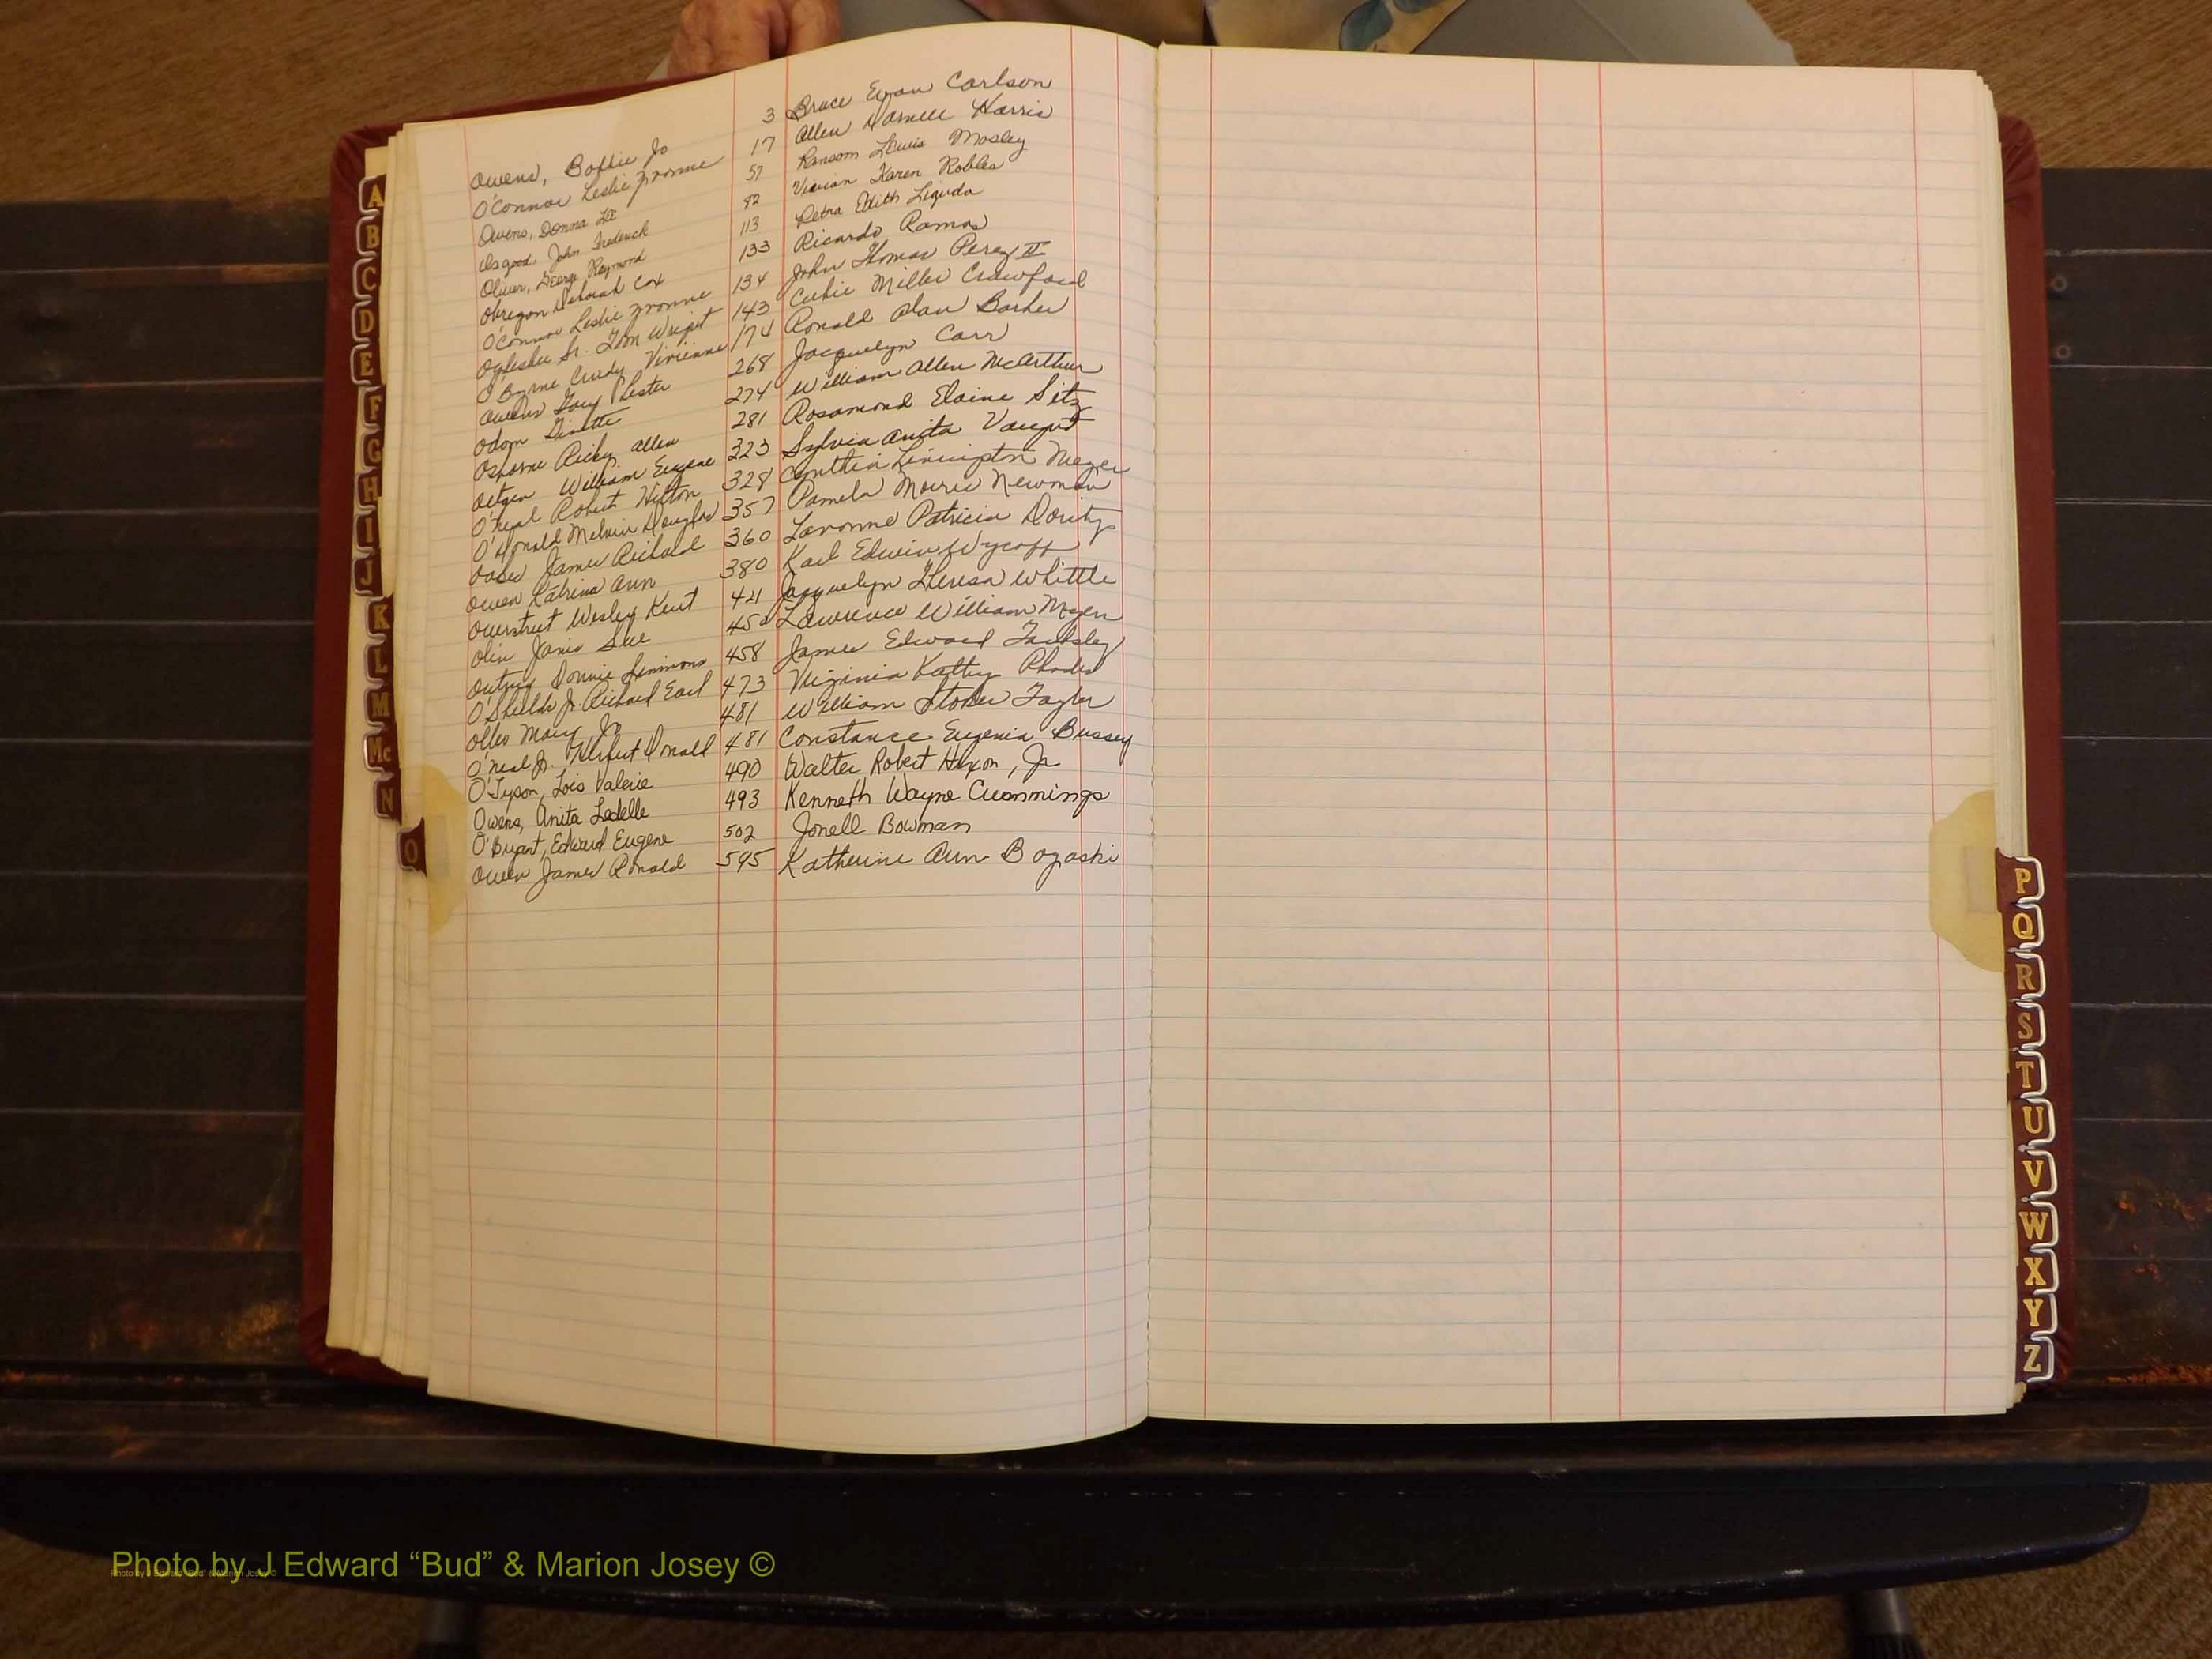 Owens, Bobbie Jo 3 Bruce Evan Carlson
O'Connor Leslie Yvonne 17 Allen Darnell Harris
Owens, Donna Lee 57 Ransom Lewis Mosley
Osgood, John Frederick 82 Vivian Karen Robles
Oliver, George Raymond 113 Petra Edith
Obregon Deborah Cox 133 Ricardo Ramos
O'Connor Leslie Yvonne 134 John Thomas Perez II
Oglesbee Sr. Tom Wright 143 Miller Crawford
O'Byrne Cindy Vivienne 174 Ronald Alan Barker
Owens Gary Lester 268 Jacquelyn Carr
Odom Ginette 274 William Allen McArthur
Osborne Ricky Allen 281 Rosamond Elaine Sitz
Oetgen William Eugene 323 Sylvia Anita Vaught
O'Neal Robert Hilton 328 Cynthia Livingston Meyer
O'Donald Melvin Douglas 357 Pamela Morris Newman
James Richard 360 Lavonne Patricia Dority
Owen Katrina Ann 380 Karl Edwin Wycoff
Overstreet Wesley Kent 421 Jacquelyn Theresa Whittle
Olin Janis Sue 452 Lawrence William Moyer
Donnie Simmons 458 James Edward
O'Shields Jr. Richard Earl 473 Virginia Kathy Rhodes
Olles Mary Jo 481 William Stokes Taylor
O'Neal Jr. Herbert Donald 481 Constance Eugenia Bussey
O'Tyson, Lois Valerie 490 Walter Robert Hixon, Jr
Owens, Anita Ledelle 493 Kenneth Wayne Cummings
O'Bryant, Edward Eugene 502 Jonell Bowman
Owen James Ronald 595 Katherine Ann Bogaski
A
B
C
D
E
F
G
H
I
J
K
L
M
Mc
N
O
P
Q
R
S
T
U
V
W
X
Y
Z
Photo by J Edward “Bud” & Marion Josey ©
Photo by J Edward “Bud” & Marion Josey ©